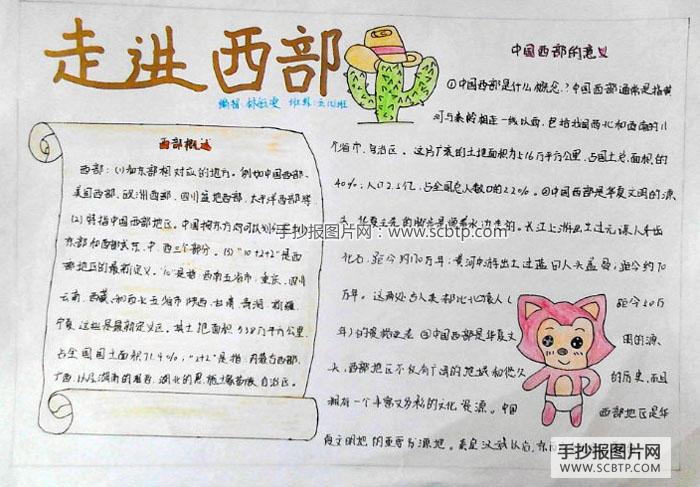 走进西部
编者 班级
西部概述
西部：(1)和东部相对应的地方。例如中国西部、
美国西部、欧洲西部、四川盆地西部、太平洋西部等
(2) 特指中国西部地区。中国按东方
东部和西部或东、中、西三个部分。(3) “10+2+2”是西
部地区的最新定义。“10”是指：西南五省市，重庆、四川
云南、西藏和西北五省市陕西、甘肃、青海、新疆、
宁夏，这些是最新定义区。其土地面积 万平方公里，
占全国国土面积71.4%；“2+2”是指：内蒙古西部、
广西，以及湖南的湘西、湖北的恩施土家苗族自治区。
中国西部的意义
①中国西部是什么概念？中国西部通常是指黄
河与秦岭相连一线以西，包括我国西北和西南的11
个省市、自治区。这片广袤的土地面积为516万平方公里，占国土总面积的
40%；人口2.5亿，占全国总人数口的22%。②中国西部是华夏文明的源
头，华夏 的 是 水 的。长江上游出土过元谋人牙齿
化石，距今约170万年；黄河中游出土过蓝田人头盖骨，距今约70
万年。这两处古人类都比北京人（ 距今50万
年） ③中国西部是华夏文 明的源
头，西部地区不仅有广阔的地域和悠久 的历史，而且
拥有一个丰富又多彩的文化资源。中国 西部地区是华
夏文明 的重要 源地。秦皇汉武以后，
手抄报图片网:www.scbtp.com
手抄报图片网
WWW.SCBTP.COM